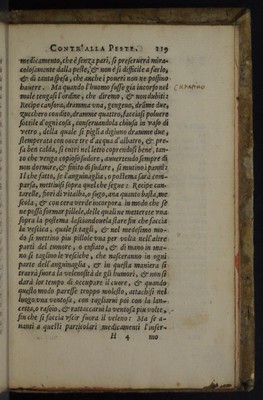 CONTR'ALLA PESTE. 259
medicamento, che è senza pari, si preseruerà mira-
colosamente dalla peste, & non è sì difficile a farlo,
& di tanta spesa, che anche i poueri non ne possino
hauere. Ma quando l'huomo fusse già incorso nel
male tengasi l'ordine, che diremo, & non dubiti:
Recipe canfora, dramma vna, gengeuo, dramme due,
zucchero condito, dramme quattro, facciasi poluere
sottile d'ogni cosa, conseruandola chiusa in vaso di
vetro, della quale si piglia digiuno dramme due,
stemperata con once tre d'acqua d'albatro, & pre-
sa ben calda, si entri nel letto coprendosi bene, tan-
to che venga copioso sudore, auuertendo sempre di
non dormire, & finito di sudare, si mutino i panni:
Il che fatto, se l'anguinaglia, o postema sarà com-
parsa, mettiuisi sopra quel che segue: Recipe can-
tarelle, fiori di vitalba, o sugo, ana quanto basta, me-
scola, & con cera verde incorpora in modo che se
ne possa formar pillole, delle quali ne metterete vna
sopra la postema lasciandouela stare fin che faccia
la vescica, quale si tagli, & nel medesimo mo-
do si mettino più pillole vna per volta nell'altre
parti del tumore, o enfiato, & di mano in ma-
no si taglino le vesciche, che nasceranno in ogni
parte dell'anguinaglia, & in questa maniera si
trarrà fuora la velenosità de gli humori, & non si
darà lor tempo di occupare il cuore, & quando
questo modo paresse troppo molesto, attachisi nel
luogo vna ventosa, con tagliarui poi con la lan-
cetta, o rasoio, & rattaccarui la ventosa più volte,
fin che si faccia vscir fuora il veleno: Ma se a-
uanti a questi particolari medicamenti l'infer-
H 4 mo